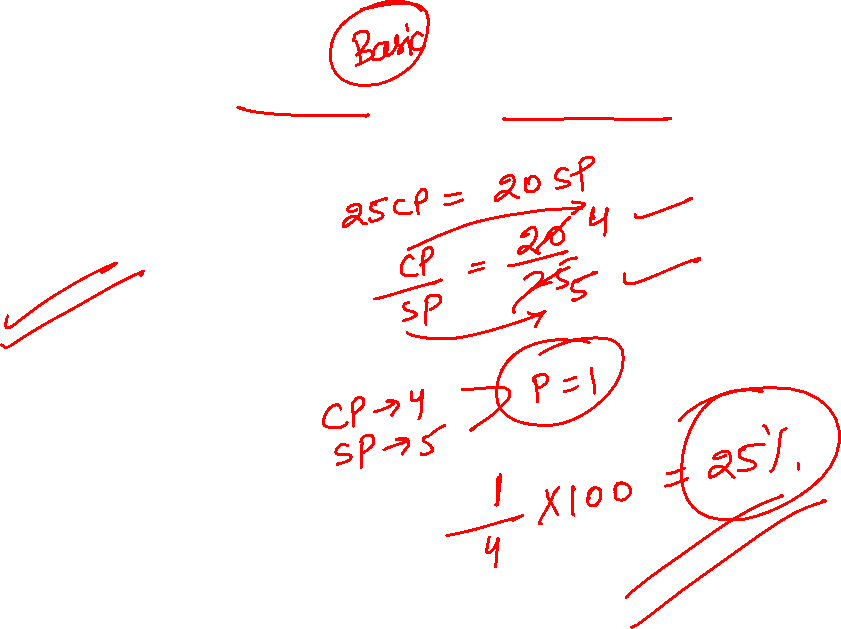 Basic
25CP = 20SP
CP/SP = 20/25 4/5
CP→4
SP→5
P=1
1/4 X100 = 25%